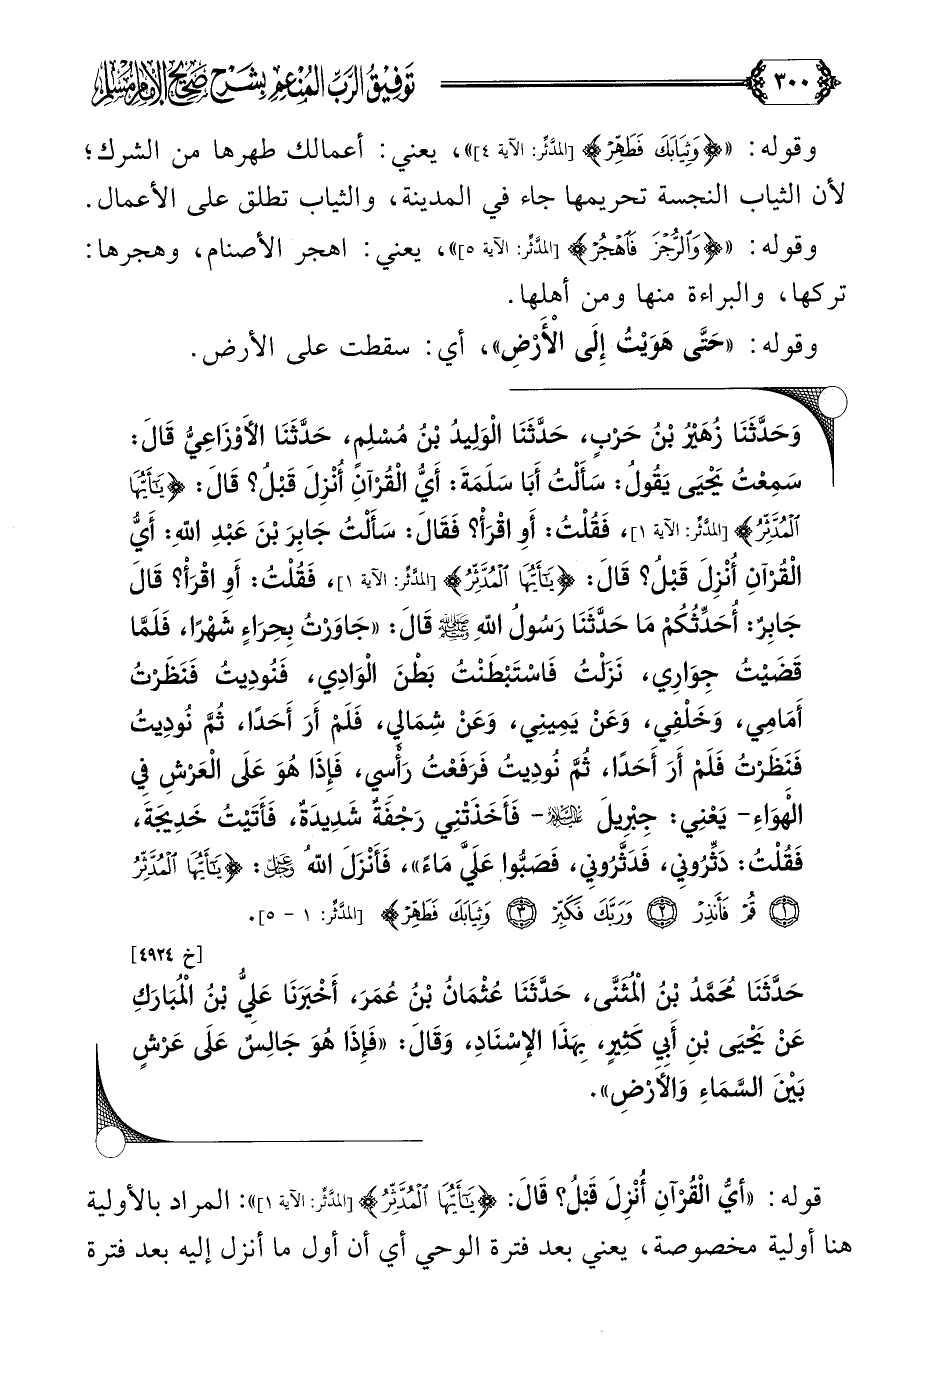 ٣٠٠ توفيق الرب المنعم بشرح صحيح الإمام مسلم
وقوله: «﴿وَثِيَابَكَ فَطَهِّرْ﴾ [المدَّثِّر: الآية ٤]»، يعني: أعمالك طهرها من الشرك؛
لأن الثياب النجسة تحريمها جاء في المدينة، والثياب تطلق على الأعمال.
وقوله: «﴿وَٱلرُّجْزَ فَٱهْجُرْ﴾ [المدَّثِّر: الآية ٥]»، يعني: اهجر الأصنام، وهجرها:
تركها، والبراءة منها ومن أهلها.
وقوله: «حَتَّى هَوَيْتُ إِلَى الْأَرْضِ»، أي: سقطت على الأرض.
وَحَدَّثَنَا زُهَيْرُ بْنُ حَرْبٍ، حَدَّثَنَا الْوَلِيدُ بْنُ مُسْلِمٍ، حَدَّثَنَا الْأَوْزَاعِيُّ قَالَ:
سَمِعْتُ يَحْيَى يَقُولُ: سَأَلْتُ أَبَا سَلَمَةَ: أَيُّ الْقُرْآنِ أُنْزِلَ قَبْلُ؟ قَالَ: ﴿يَٰٓأَيُّهَا
ٱلْمُدَّثِّرُ﴾ [المدَّثِّر: الآية ١]، فَقُلْتُ: أَوِ اقْرَأْ؟ فَقَالَ: سَأَلْتُ جَابِرَ بْنَ عَبْدِ اللهِ: أَيُّ
الْقُرْآنِ أُنْزِلَ قَبْلُ؟ قَالَ: ﴿يَٰٓأَيُّهَا ٱلْمُدَّثِّرُ﴾ [المدَّثِّر: الآية ١]، فَقُلْتُ: أَوِ اقْرَأْ؟ قَالَ
جَابِرٌ: أُحَدِّثُكُمْ مَا حَدَّثَنَا رَسُولُ اللهِ ﷺ قَالَ: «جَاوَرْتُ بِحِرَاءٍ شَهْرًا، فَلَمَّا
قَضَيْتُ جِوَارِي، نَزَلْتُ فَاسْتَبْطَنْتُ بَطْنَ الْوَادِي، فَنُودِيتُ فَنَظَرْتُ
أَمَامِي، وَخَلْفِي، وَعَنْ يَمِينِي، وَعَنْ شِمَالِي، فَلَمْ أَرَ أَحَدًا، ثُمَّ نُودِيتُ
فَنَظَرْتُ فَلَمْ أَرَ أَحَدًا، ثُمَّ نُودِيتُ فَرَفَعْتُ رَأْسِي، فَإِذَا هُوَ عَلَى الْعَرْشِ فِي
الْهَوَاءِ- يَعْنِي: جِبْرِيلَ عليه السلام- فَأَخَذَتْنِي رَجْفَةٌ شَدِيدَةٌ، فَأَتَيْتُ خَدِيجَةَ،
فَقُلْتُ: دَثِّرُونِي، فَدَثَّرُونِي، فَصَبُّوا عَلَيَّ مَاءً»، فَأَنْزَلَ اللهُ عز وجل: ﴿يَٰٓأَيُّهَا ٱلْمُدَّثِّرُ
۝١ قُمْ فَأَنذِرْ ۝٢ وَرَبَّكَ فَكَبِّرْ ۝٣ وَثِيَابَكَ فَطَهِّرْ﴾ [المدَّثِّر: ١ - ٥].
[خ ٤٩٢٤]
حَدَّثَنَا مُحَمَّدُ بْنُ الْمُثَنَّى، حَدَّثَنَا عُثْمَانُ بْنُ عُمَرَ، أَخْبَرَنَا عَلِيُّ بْنُ الْمُبَارَكِ
عَنْ يَحْيَى بْنِ أَبِي كَثِيرٍ، بِهَذَا الْإِسْنَادِ، وَقَالَ: «فَإِذَا هُوَ جَالِسٌ عَلَى عَرْشٍ
بَيْنَ السَّمَاءِ وَالْأَرْضِ».
قوله: «أَيُّ الْقُرْآنِ أُنْزِلَ قَبْلُ؟ قَالَ: ﴿يَٰٓأَيُّهَا ٱلْمُدَّثِّرُ﴾ [المدَّثِّر: الآية ١]»: المراد بالأولية
هنا أولية مخصوصة، يعني بعد فترة الوحي أي أن أول ما أنزل إليه بعد فترة